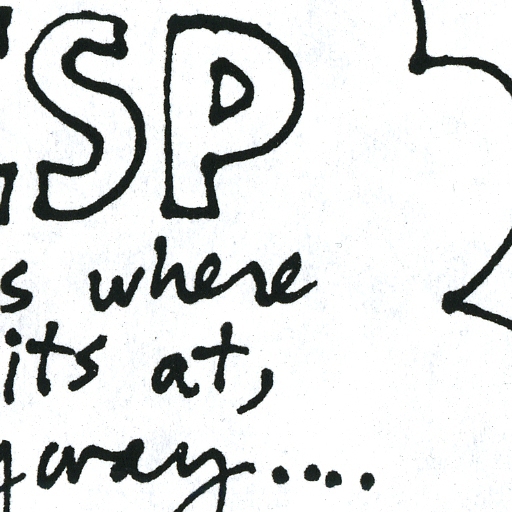 ESP
s where
its at,
yway....